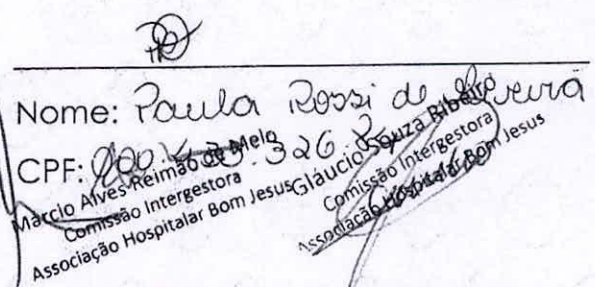 Nome: Paula Rossi de
CPF: 326
Márcio Alves Reimão de Melo
Comissão Intergestora
Associação Hospitalar Bom Jesus
Gláucio Souza Ribeiro
Comissão Intergestora
Associação Hospitalar Bom Jesus